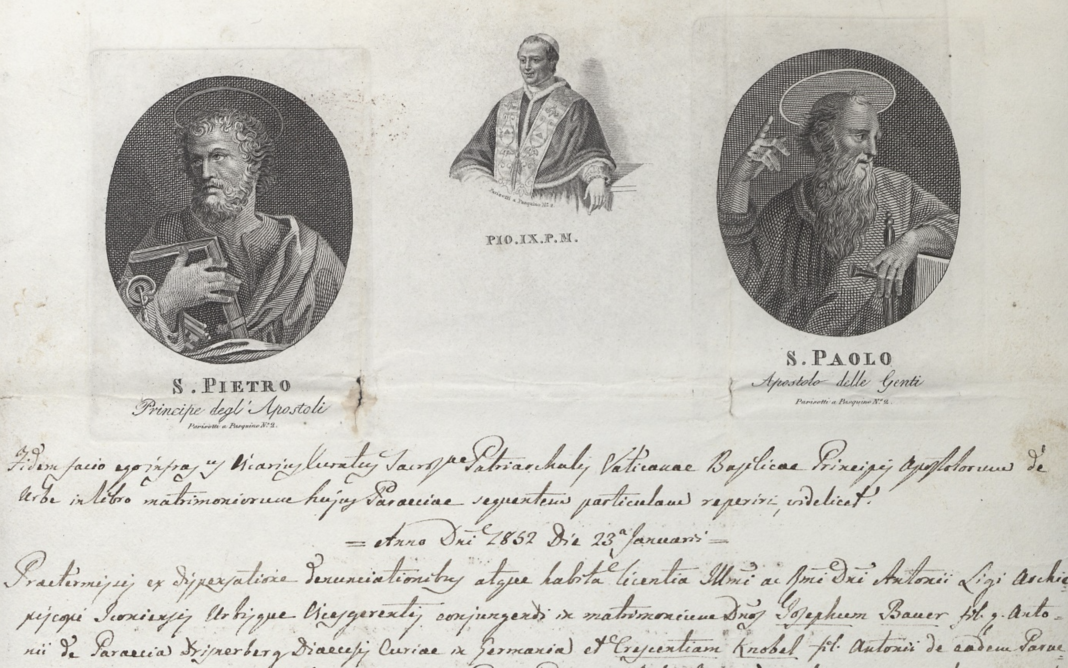 Parisotti a Pasquino Nº 2.
PIO. IX. P. M.
S. PIETRO
Principe degl' Apostoli
Parisotti a Pasquino Nº 2.
S. PAOLO
Apostolo delle Genti
Parisotti a Pasquino Nº 2.
Fidem facio ego infraus Vicarius Curatus Sacrosae Patriarchalis Vaticanae Basilicae Principis Apostolorum de
Urbe in libro matrimoniorum hujus Paraeciae sequentem particulam reperiri, videlicet
= Anno Dni 1852 Die 23a Januarii =
Praetermissis ex dispensatione denunciationibus atque habita licentia Illmi ac Rmi Dni Antonii Ligi Archie-
piscopi Iconiensis Urbisque Vicesgerentis conjungendi in matrimonium Dnos Josephum Bauer fil. q. Anto-
nii de Paraecia Diocesis Curiae in Germania et Crescentiam Knobel fil. Antonii de eadem Parae-